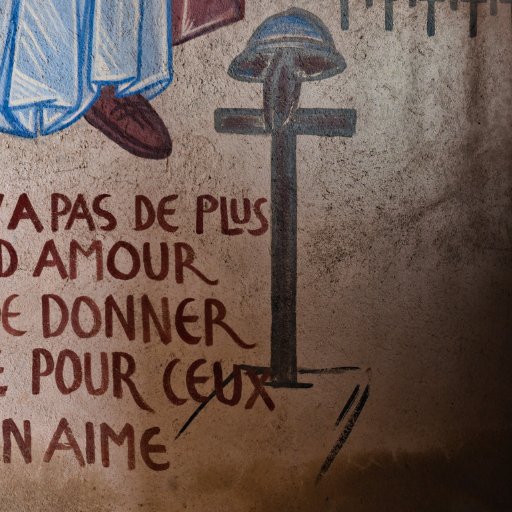 'A PAS DE PLUS
D AMOUR
E DONNER
E POUR CEUX
N AIME